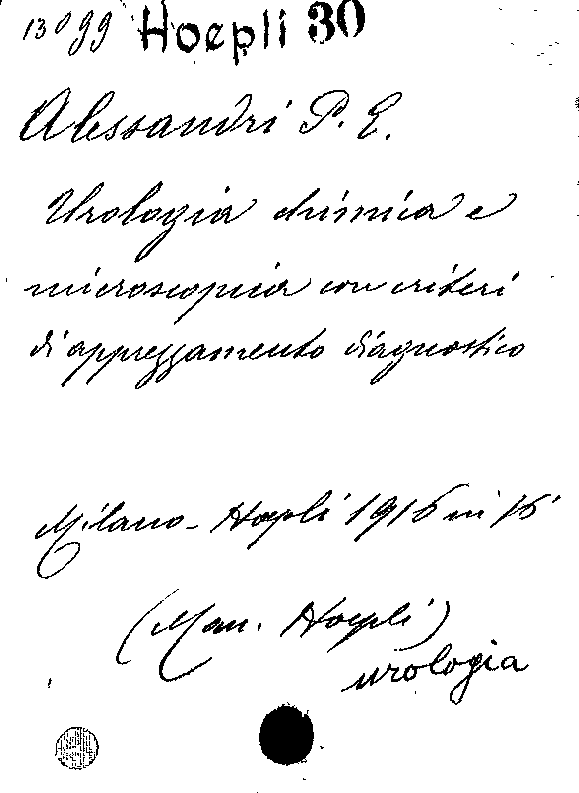 13099 Hoepli 30
Alessandri P. E.
Urologia chimica e
microscopica con criteri
di apprezzamento diagnostico
Milano - Hoepli 1915 in 16°
(Man. Hoepli)
urologia